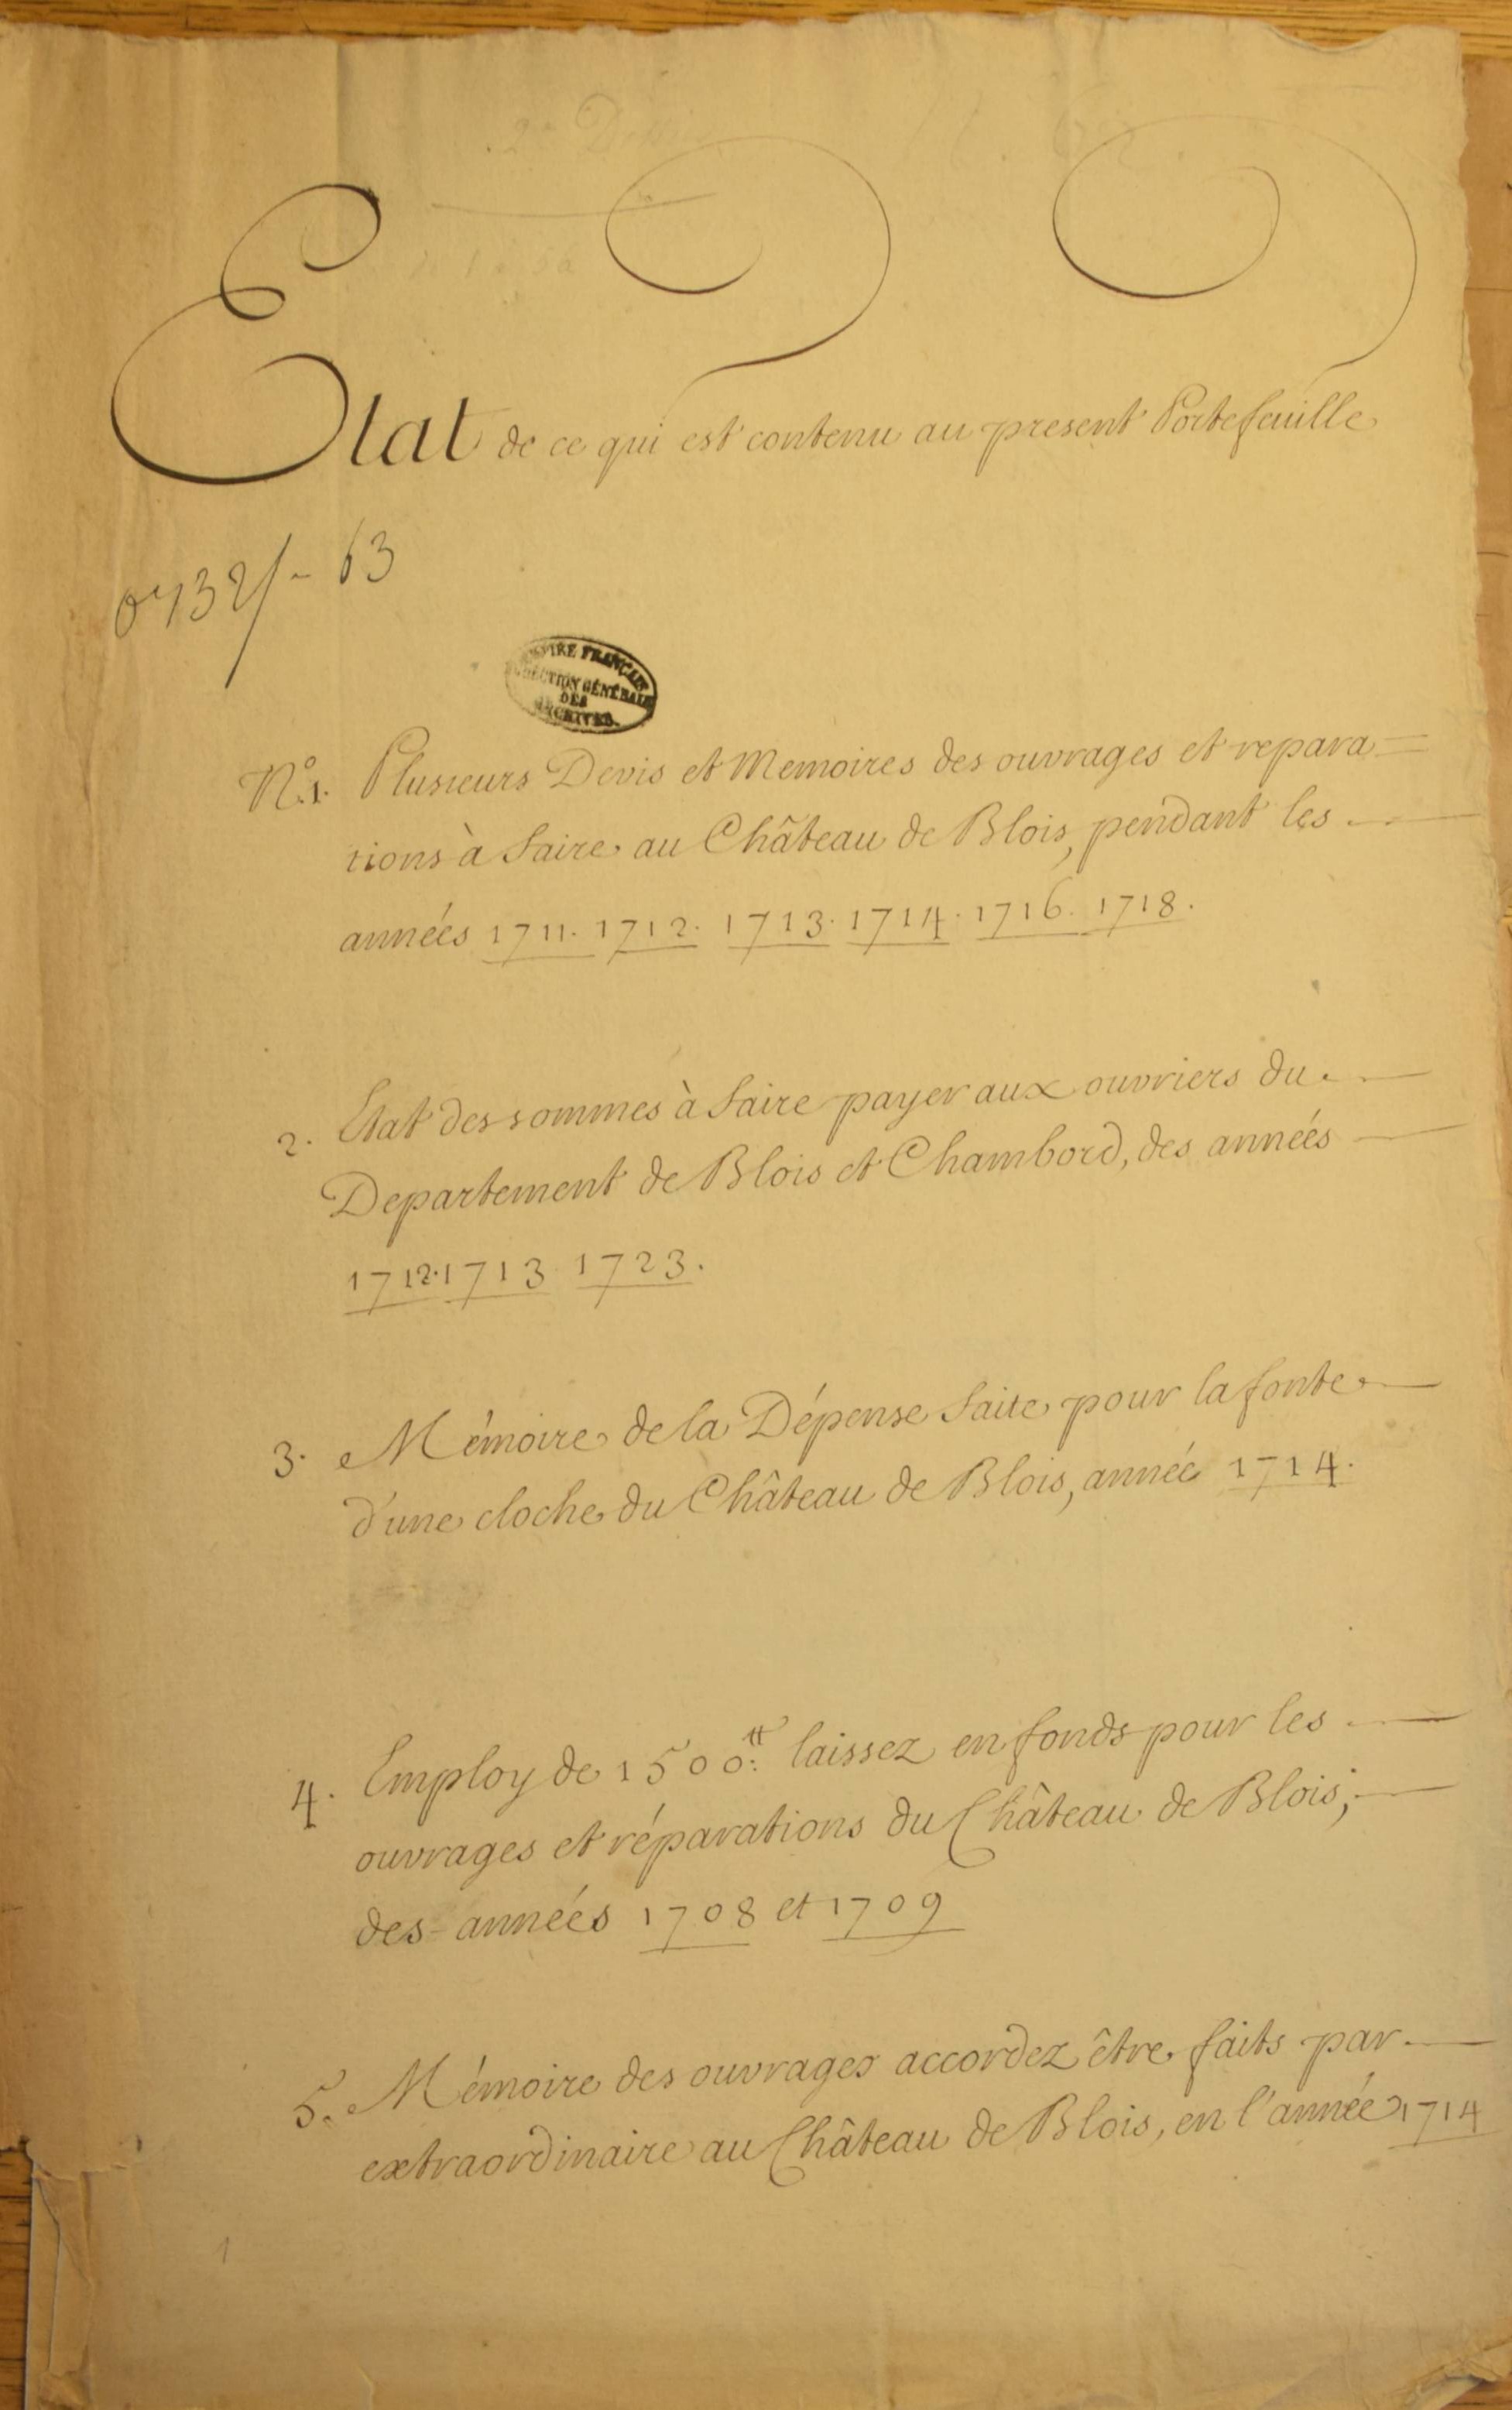 Etat de ce qui est contenu au present Portefeuille
EMPIRE FRANÇAIS
DIRECTION GÉNÉRALE
DES
ARCHIVES
N.º 1. Plusieurs Devis et Memoires des ouvrages et repara=
tions à faire au Château de Blois, pendant les
années 1711. 1712. 1713. 1714. 1716. 1718.
2. Etat des sommes à faire payer aux ouvriers du
Departement de Blois et Chambord, des années
1712. 1713 1723.
3. Mémoire de la Dépense faite pour la fonte
d'une cloche du Château de Blois, année 1714.
4. Employ de 1500:₶ laissez en fonds pour les
ouvrages et réparations du Château de Blois,
des années 1708 et 1709
5. Mémoire des ouvrages accordez être faits par
extraordinaire au Château de Blois, en l'année 1714
1